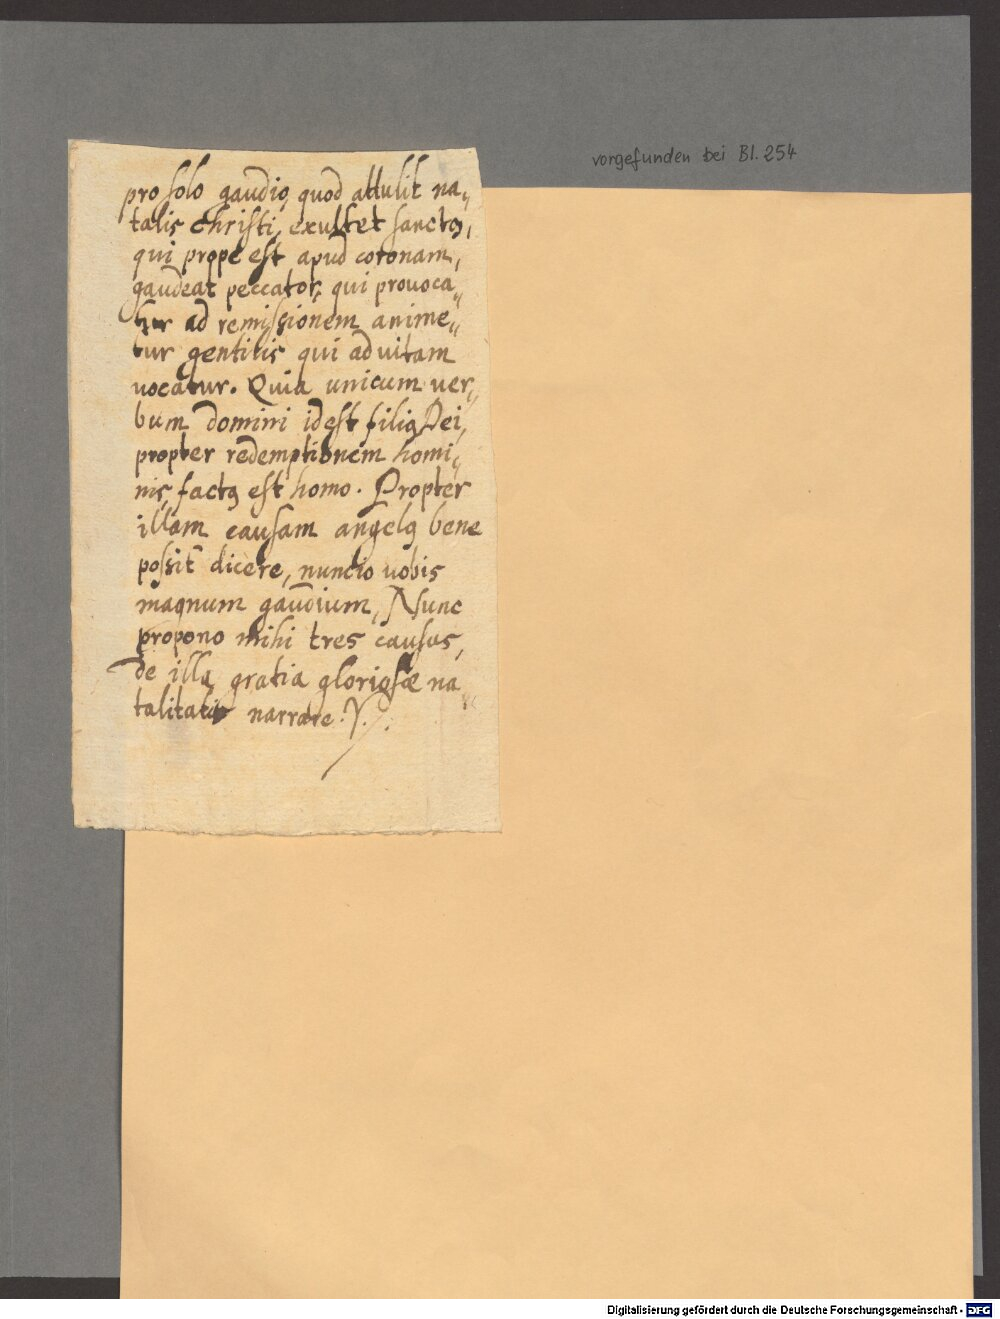 vorgefunden bei Bl. 254
pro solo gaudio, quod attulit na„
talis Christi, exultet sanctꝯ,
qui prope est apud coronam,
gaudeat peccator, qui prouoca„
tur ad remissionem anime„
tur gentilis qui ad vitam
vocatur. Quia unicum ver„
bum domini id est filiꝯ Dei,
propter redemptionem homi„
nis, factꝯ est homo. Propter
illam causam angelꝯ bene
possit dicere, nuncio vobis
magnum gaudium, Nunc
propono mihi tres causas,
de illa gratia gloriosæ na„
talitatis narrare.
Digitalisierung gefördert durch die Deutsche Forschungsgemeinschaft - DFG